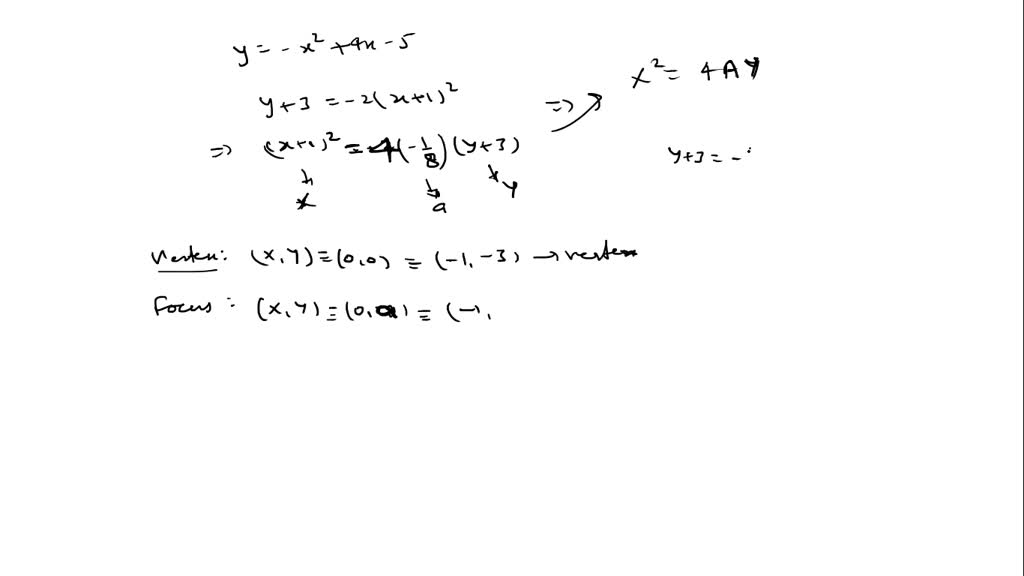 y = -x² + 4x - 5
y + 3 = -2(x+1)²
=> (x+1)² = 4(-1/8)(y+3)
=>
x² = 4AY
y+3 = -
X
a
Y
Vertex: (X,Y) ≡ (0,0) ≡ (-1,-3) → vertex
Focus: (X,Y) ≡ (0,a) ≡ (-1,